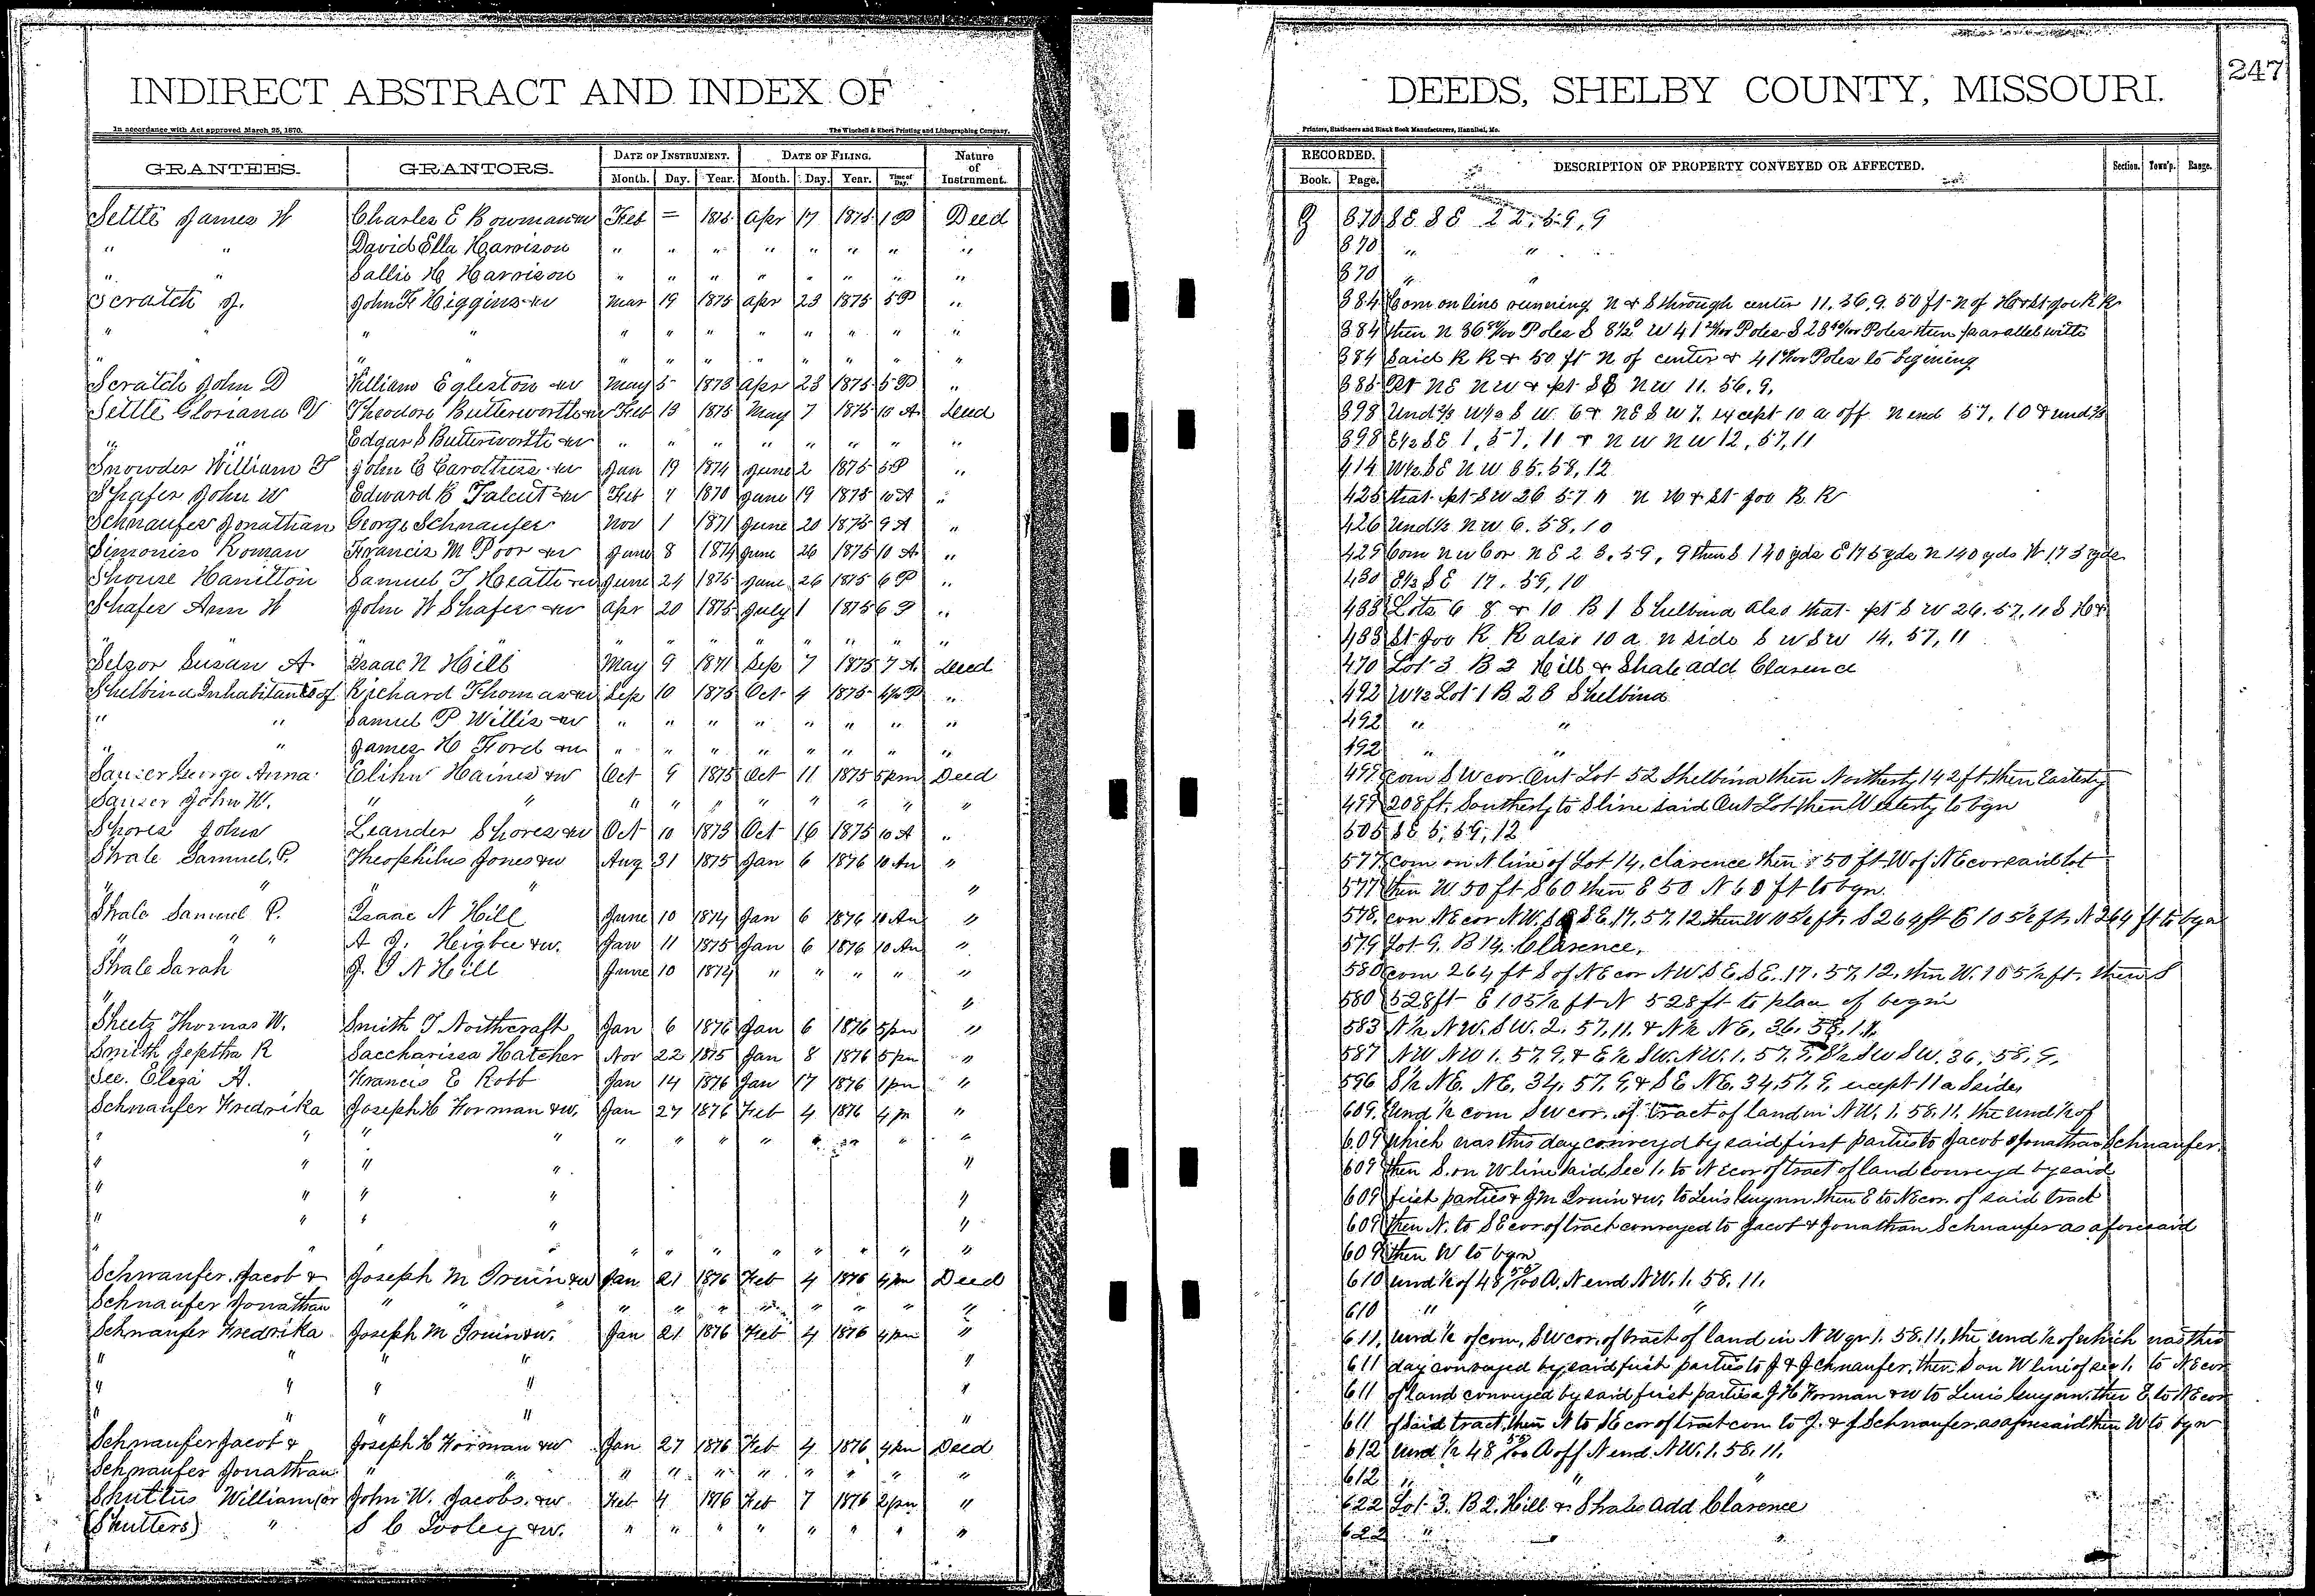 INDIRECT ABSTRACT AND INDEX OF
In accordance with Act approved March 25, 1870.
The Winchell & Ebert Printing and Lithographing Company,
GRANTEES. GRANTORS. DATE OF INSTRUMENT. DATE OF FILING. Nature of Instrument.
Month. Day. Year. Month. Day. Year. Time of Day.
Settle James W Charles E Bowman &w Feb = 1875 Apr 17 1875 1 P Deed
" " David Ella Harrison " " " " " " " "
" " Sallie H Harrison " " " " " " " "
Scratch J. John F Higgins &w Mar 19 1875 Apr 23 1875 5 P "
" " " " " " " " " " " "
" " " " " " " " " " " "
Scratch John D William Egleston &w May 5 1873 Apr 23 1875 5 P "
Settle Gloriana V Theodore Butterworth &w Feb 13 1875 May 7 1875 10 A Deed
" Edgar S Butterworth &w " " " " " " " "
Snowder William T John C Carothers &w Jan 19 1874 June 2 1875 5 P "
Shafer John W Edward B Talcut &w Feb 7 1870 June 19 1875 10 A "
Schnaufer Jonathan George Schnaufer Nov 1 1871 June 20 1875 9 A "
Simonin Roman Francis M Poor &w June 8 1874 June 26 1875 10 A "
Shouse Hamilton Samuel T Heath &w June 24 1875 June 26 1875 6 P "
Shafer Ann W John W Shafer &w Apr 20 1875 July 1 1875 6 P "
" " " " " " " " " "
Selsor Susan A. Isaac N Hill May 9 1871 Sep 7 1875 7 A Deed
Shelbina Inhabitants of Richard Thomas &w Sep 10 1875 Oct 4 1875 4½ P "
" " Samuel P Willis &w " " " " " " " "
" " James H Ford &w " " " " " " " "
Sauzer George Anna Elihu Haines &w Oct 9 1875 Oct 11 1875 5pm Deed
Sauzer John W. " " " " " " " " " "
Shores John Leander Shores &w Oct 10 1873 Oct 16 1875 10 A "
Shale Samuel P. Theophilus Jones &w Aug 31 1875 Jan 6 1876 10 Am "
" " " " "
Shale Samuel P. Isaac N Hill June 10 1874 Jan 6 1876 10 Am "
" " " A J. Heigbee &w. Jan 11 1875 Jan 6 1876 10 Am "
Shale Sarah J. I N Hill June 10 1874 " " " " "
" "
Sheetz Thomas W. Smith T Northcraft Jan 6 1876 Jan 6 1876 5pm "
Smith Jeptha R Saccharissa Hatcher Nov 22 1875 Jan 8 1876 5pm "
See. Eliza A. Francis E Robb Jan 14 1876 Jan 17 1876 1pm "
Schnaufer Fredrika Joseph H Forman &w. Jan 27 1876 Feb 4 1876 4 p "
" " " " " " " " " " " "
" " " " "
" " " " "
" " " " "
" " " " " " " " " " " "
Schnaufer Jacob & Joseph M Irwin &w Jan 21 1876 Feb 4 1876 4pm Deed
Schnaufer Jonathan " " " " " " " " " " "
Schnaufer Fredrika Joseph M Irwin &w. Jan 21 1876 Feb 4 1876 4pm "
" " " " "
" " " " "
" " " " "
Schnaufer Jacob & Joseph H Forman &w Jan 27 1876 Feb 4 1876 4pm Deed
Schnaufer Jonathan " " " " " " " " " "
Shuttus William (or John W. Jacobs. &w Feb 4 1876 Feb 7 1876 2pm "
(Shutters) " S C Tooley &w. " " " " " " " "
DEEDS, SHELBY COUNTY, MISSOURI.
247
Printers, Stationers and Blank Book Manufacturers, Hannibal, Mo.
RECORDED. DESCRIPTION OF PROPERTY CONVEYED OR AFFECTED. Section. Town'p. Range.
Book. Page.
370 SE SE 22, 59, 9
370 " "
370 " "
384 Com on line running N & S through center 11. 56. 9. 50 ft N of H & St Joe R R
384 then N 36 Poles S 8½° W 41 Poles S 28 Poles then parallel with
384 Said R R & 50 ft N of center & 41 Poles to begining
385 Pt NE NW & pt SE NW 11. 56. 9.
398 Und ⅔ W½ SW. 6 & NE SW 7. except 10 a off N end 57, 10 & und ⅔
398 E½ SE 1, 57, 11 & NW NW 12, 57, 11
414 W½ SE NW 35. 58, 12
425 that pt SW 26 57 11 N H & St Joe R R
426 Und ½ NW 6. 58, 10
429 Com NW Cor NE 23. 59, 9 then S 140 yds E 175 yds N 140 yds W 175 yds
430 E½ SE 17. 59, 10
433 Lots 6 8 & 10 B 1 Shelbina also that pt SW 26. 57, 11 S H &
433 St Joe R R also 10 a N side SW SW 14, 57, 11
470 Lot 3 B 2 Hill & Shale add Clarence
492 W½ Lot 1 B 26 Shelbina
492 " "
492 " "
499 com SW cor. Out Lot 52 Shelbina then Northerly 142 ft. then Easterly
499 208 ft. Southerly to S line said Out Lot then Westerly to bgn
505 SE 5, 59, 12
577 com on N line of Lot 14, Clarence then 50 ft W of NE cor said lot
577 then W. 50 ft S 60 then E 50 N 60 ft to bgn
578. com NE cor N.W. SE SE. 17. 57. 12 then W 105½ ft. S 264 ft E 105½ ft. N 264 ft to bgn
579 Lot 9. B 14. Clarence.
580 com 264 ft S of NE cor NW SE. SE. 17. 57. 12. then W. 105½ ft. then S
580 528 ft E 105½ ft N 528 ft to place of begin
583 N½ NW. SW. 2. 57. 11. & N½ NE. 36. 58. 11.
587 NW NW 1. 57. 9. & E½ SW. NW. 1. 57. 9. S½ SW SW. 36. 58. 9.
596 S½ NE. NE. 34. 57. 9. & SE NE. 34. 57. 9. except 11 a S side,
609. Und ½ com SW cor. of tract of land in NW. 1. 58. 11. the und ½ of
609 which was this day conveyd by said first parties to Jacob & Jonathan Schnaufer.
609 then S. on W line said Sec 1. to NE cor of tract of land conveyd by said
609 first parties & J M Irwin & w, to Lewis Gwynn then E to NE cor. of said tract
609 then N. to SE cor of tract conveyed to Jacob & Jonathan Schnaufer as aforesaid
609 then W to bgn
610 und ½ of 48 56/100 A. N end NW. 1. 58. 11.
610 " "
611. und ½ of com. SW cor. of tract of land in NW qr 1. 58. 11. the und ½ of which was this
611 day conveyed by said first parties to J & J Schnaufer. then S on W line of sec 1. to NE cor
611 of land conveyed by said first parties & J H Forman & w to Lewis Gwynn. then E. to NE cor
611 of said tract, then N to SE cor of tract con to J. & J Schnaufer. as aforesaid then W to bgn
612 und ½ 48 56/100 A off N end NW. 1. 58. 11.
612 " " "
622 Lot 3. B 2. Hill & Shales Add Clarence
622 " " "